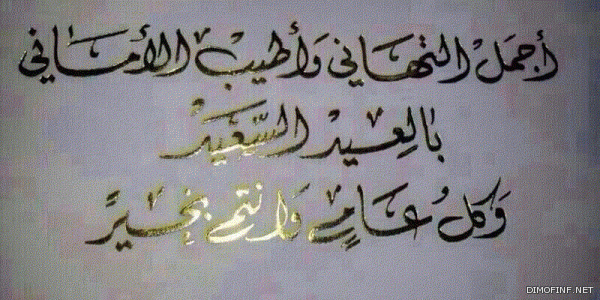 أجمَل التهَاني وَأطيب الأمَاني
بالعِيدْ السَّعَيدْ
وَكلُ عَامٍ وَانتم بخيرً
DIMOFINF.NET